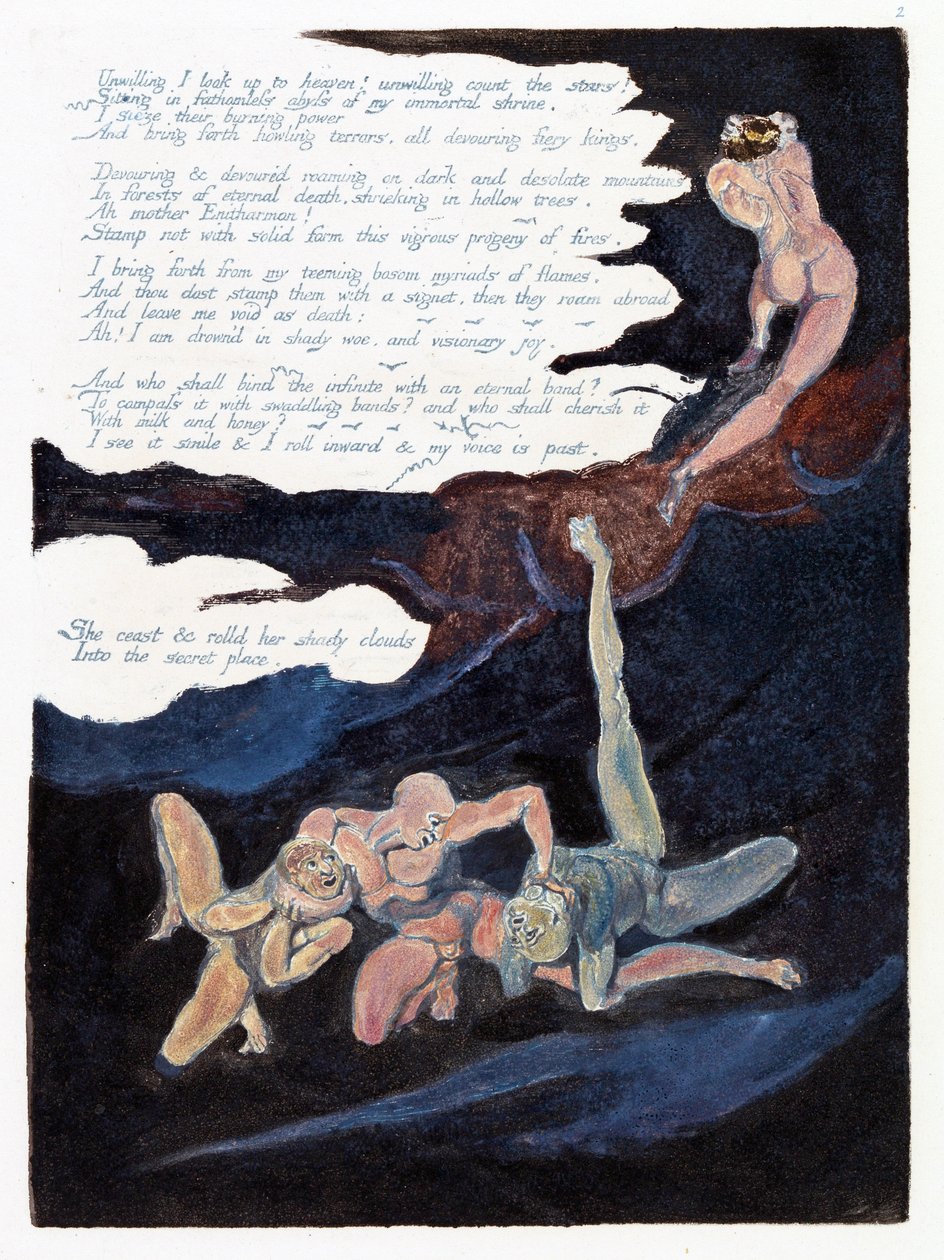 2
Unwilling I look up to heaven! unwilling count the stars!
Sitting in fathomless abyss of my immortal shrine.
I sieze their burning power
And bring forth howling terrors, all devouring fiery kings.
Devouring & devoured roaming on dark and desolate mountains
In forests of eternal death, shrieking in hollow trees.
Ah mother Enitharmon!
Stamp not with solid form this vigrous progeny of fires.
I bring forth from my teeming bosom myriads of flames.
And thou dost stamp them with a signet, then they roam abroad
And leave me void as death:
Ah! I am drown'd in shady woe, and visionary joy.
And who shall bind the infinite with an eternal band?
To compass it with swaddling bands? and who shall cherish it
With milk and honey?
I see it smile & I roll inward & my voice is past.
She ceast & rolld her shady clouds
Into the secret place.